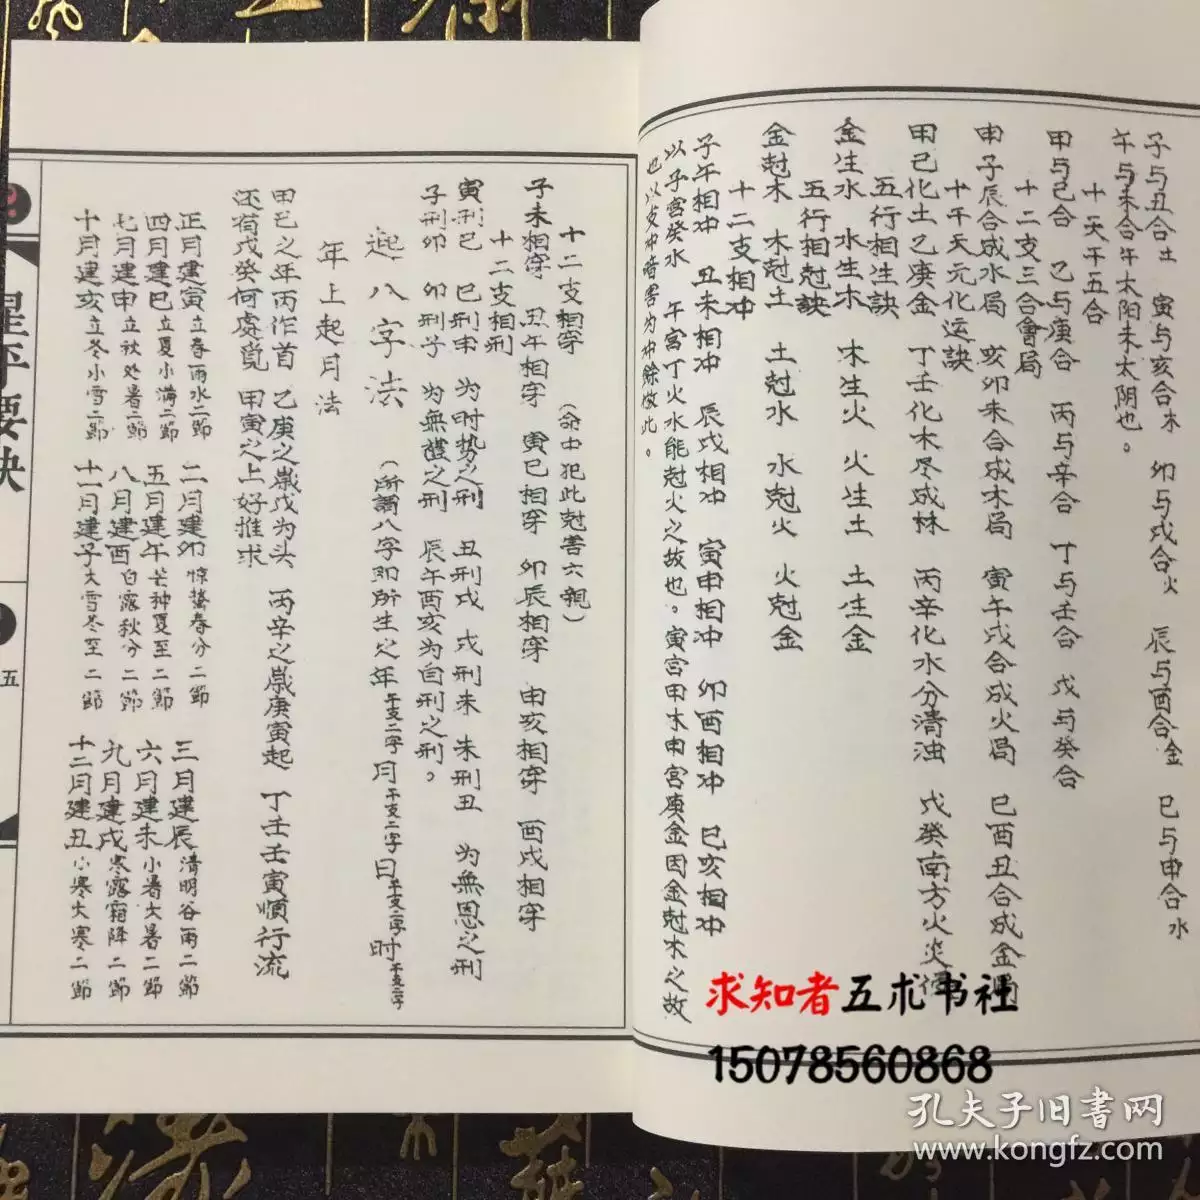 子与丑合土　寅与亥合木　卯与戌合火　辰与酉合金　巳与申合水
午与未合午太阳未太阴也。
十天干五合
甲与己合　乙与庚合　丙与辛合　丁与壬合　戊与癸合
十二支三合會局
申子辰合成水局　亥卯未合成木局　寅午戌合成火局　巳酉丑合成金局
十干天元化运訣
甲己化土乙庚金　丁壬化木尽成林　丙辛化水分清浊　戊癸南方火炎
五行相生訣
金生水　水生木　木生火　火生土　土生金
五行相尅訣
金尅木　木尅土　土尅水　水尅火　火尅金
十二支相冲
子午相冲　丑未相冲　辰戌相冲　寅申相冲　卯酉相冲　巳亥相冲
以子宮癸水　午宮丁火水能尅火之故也。寅宮甲木申宮庚金因金尅木之故
也以支冲暗害为冲餘倣此。
十二支相穿　（命中犯此尅害六親）
子未相穿　丑午相穿　寅巳相穿　卯辰相穿　申亥相穿　酉戌相穿
十二支相刑
寅刑巳　巳刑申　为时势之刑　丑刑戌　戌刑未　未刑丑　为無恩之刑
子刑卯　卯刑子　为無禮之刑　辰午酉亥为自刑之刑。
起八字法　（所謂八字即所生之年干支二字月干支二字日干支二字时干支二字
年上起月法
甲己之年丙作首　乙庚之歲戊为头　丙辛之歲庚寅起　丁壬壬寅順行流
还有戊癸何處覓　甲寅之上好推求
正月建寅立春雨水二節　二月建卯惊蟄春分二節　三月建辰清明谷雨二節
四月建巳立夏小满二節　五月建午芒种夏至二節　六月建未小暑大暑二節
七月建申立秋处暑二節　八月建酉白露秋分二節　九月建戌寒露霜降二節
十月建亥立冬小雪二節　十一月建子大雪冬至二節　十二月建丑小寒大寒二節
星平要訣
五
求知者五术书社
15078560868
孔夫子旧書网
www.kongfz.com